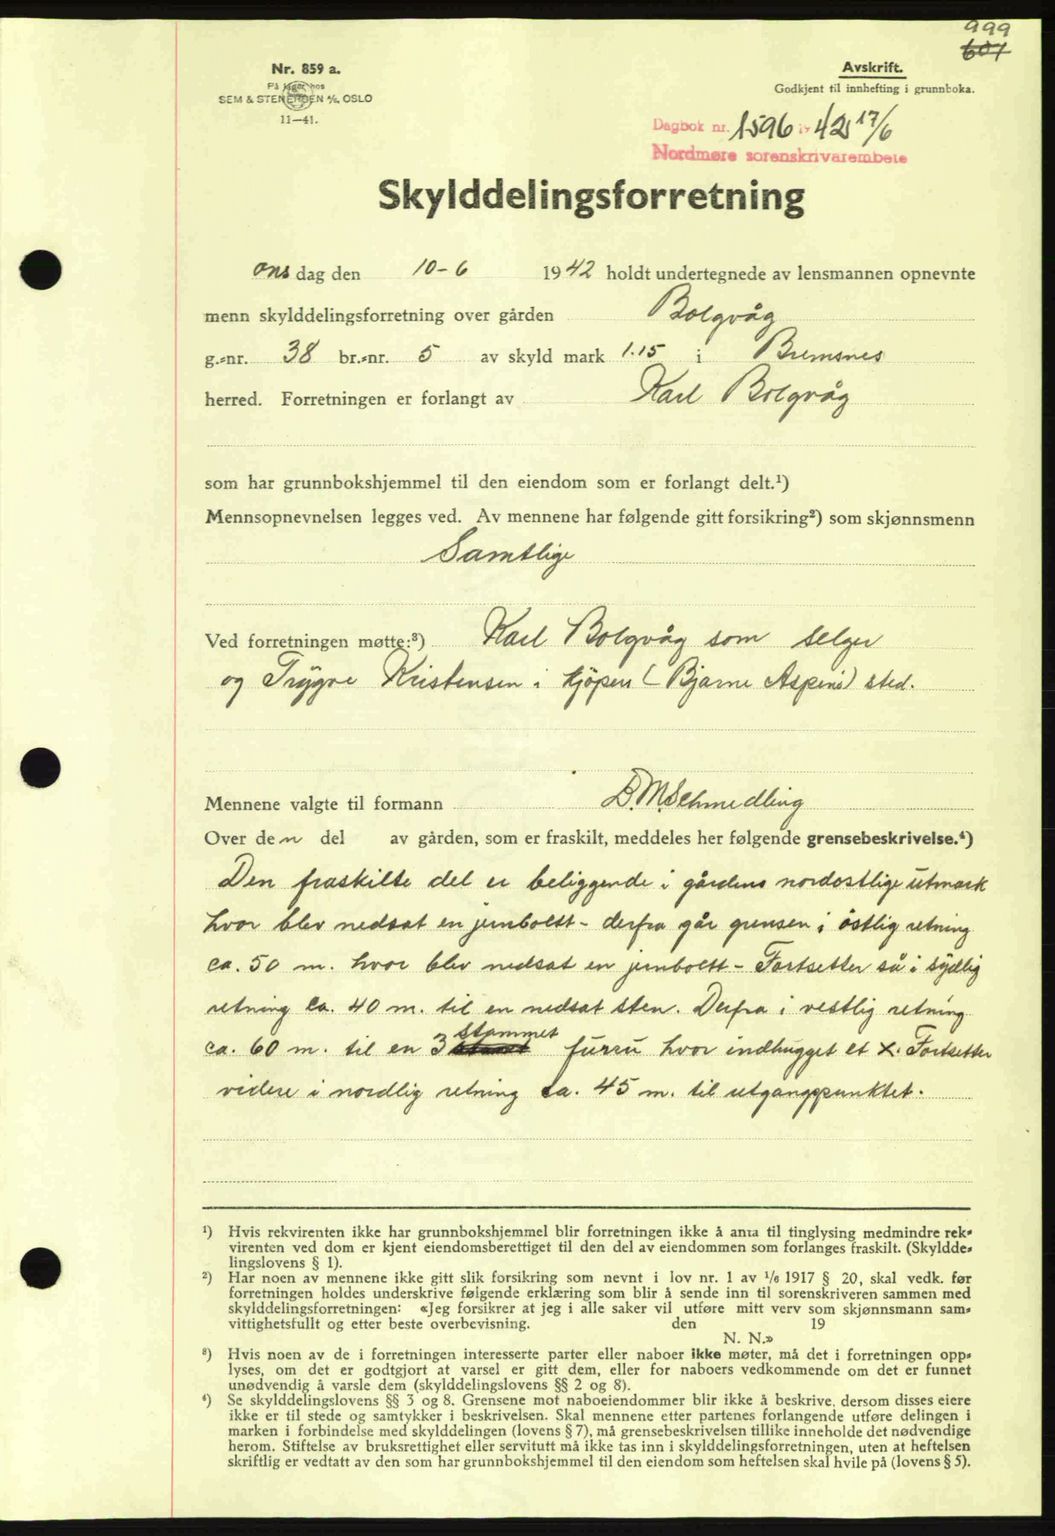 999
607
Nr. 859 a.
På lager hos
SEM & STENERSEN A/S. OSLO
11—41.
Avskrift.
Godkjent til innhefting i grunnboka.
Dagbok nr. 1596 i 42 17/6
Nordmøre sorenskrivarembete
Skylddelingsforretning
ons dag den 10-6 1942 holdt undertegnede av lensmannen opnevnte
menn skylddelingsforretning over gården Bolgvåg
g.=nr. 38 br.=nr. 5 av skyld mark 1.15 i Bremsnes
herred. Forretningen er forlangt av Karl Bolgvåg
som har grunnbokshjemmel til den eiendom som er forlangt delt.¹)
Mennsopnevnelsen legges ved. Av mennene har følgende gitt forsikring²) som skjønnsmenn
Samtlige
Ved forretningen møtte:³) Karl Bolgvåg som selger
og Trygve Kristensen i kjøpers (Bjarne Aspens) sted.
Mennene valgte til formann B.M. Schmedling
Over den del av gården, som er fraskilt, meddeles her følgende grensebeskrivelse.⁴)
Den fraskilte del er beliggende i gårdens nordostlige utmark
hvor blev nedsat en jernboltt - derfra går grensen i östlig retning
ca. 50 m. hvor blev nedsat en jernboltt - Fortsetter så i sydlig
retning ca. 40 m. til en nedsat sten. Derfra i vestlig retning
ca. 60 m. til en 3 stammet furru hvor indhugget et X. Fortsetter
videre i nordlig retning ca. 45 m. til utgangspunktet.
¹) Hvis rekvirenten ikke har grunnbokshjemmel blir forretningen ikke å anta til tinglysing medmindre rek=
virenten ved dom er kjent eiendomsberettiget til den del av eiendommen som forlanges fraskilt. (Skyldde=
lingslovens § 1).
²) Har noen av mennene ikke gitt slik forsikring som nevnt i lov nr. 1 av 1/6 1917 § 20, skal vedk. før
forretningen holdes underskrive følgende erklæring som blir å sende inn til sorenskriveren sammen med
skylddelingsforretningen: «Jeg forsikrer at jeg i alle saker vil utføre mitt verv som skjønnsmann sam=
vittighetsfullt og etter beste overbevisning. den 19
N. N.»
³) Hvis noen av de i forretningen interesserte parter eller naboer ikke møter, må det i forretningen opp=
lyses, om det er godtgjort at varsel er gitt dem, eller for naboers vedkommende om det er funnet
unødvendig å varsle dem (skylddelingslovens §§ 2 og 8).
⁴) Se skylddelingslovens §§ 3 og 8. Grensene mot naboeiendommer blir ikke å beskrive, dersom disses eiere
ikke er til stede og samtykker i beskrivelsen. Skal mennene etter partenes forlangende utføre delingen i
marken i forbindelse med skylddelingen (lovens § 7), må grensebeskrivelsen tillike inneholde det nødvendige
herom. Stiftelse av bruksrettighet eller servitutt må ikke tas inn i skylddelingsforretningen, uten at heftelsen
skriftlig er vedtatt av den som har grunnbokshjemmel til den eiendom som heftelsen skal hvile på (lovens § 5).